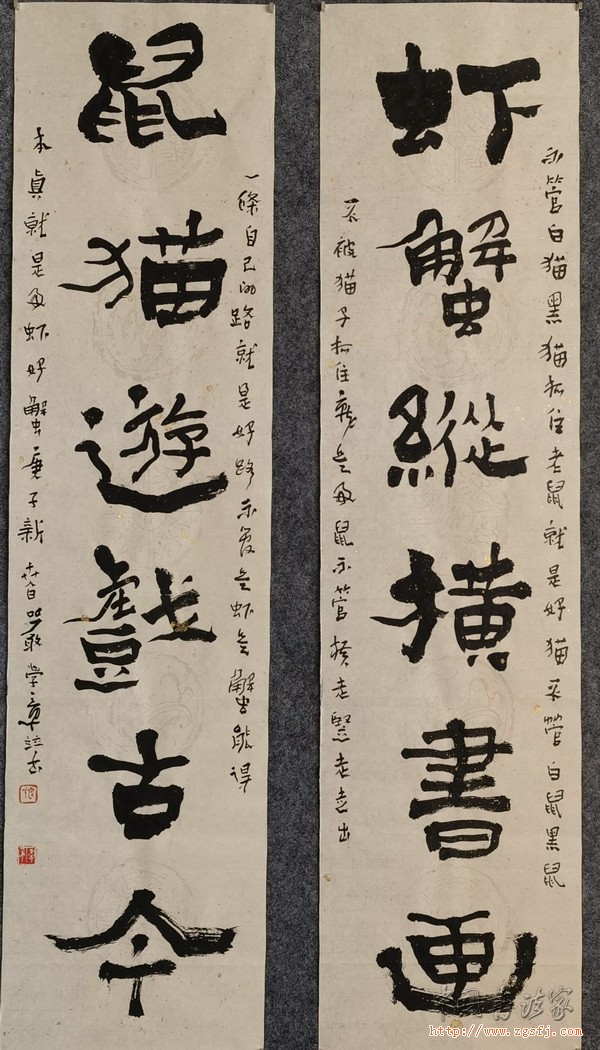 虾蟹縱横書画
不管白猫黑猫抓住老鼠就是好猫不管白鼠黑鼠
不被猫子抓住就是好鼠不管横走竖走走出
鼠猫遊戲古今
一條自己的路就是好路不管是虾是蟹能得
本真就是好虾好蟹
中国书法家
http://www.zgsfj.com